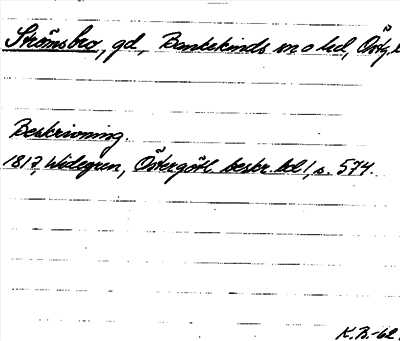 Strömsbro, gd, Bankekinds sn o hd, Östg.
Beskrivning.
1817, Widegren, Östergötl. beskr. bd 1, s. 574.
K.B.-62.